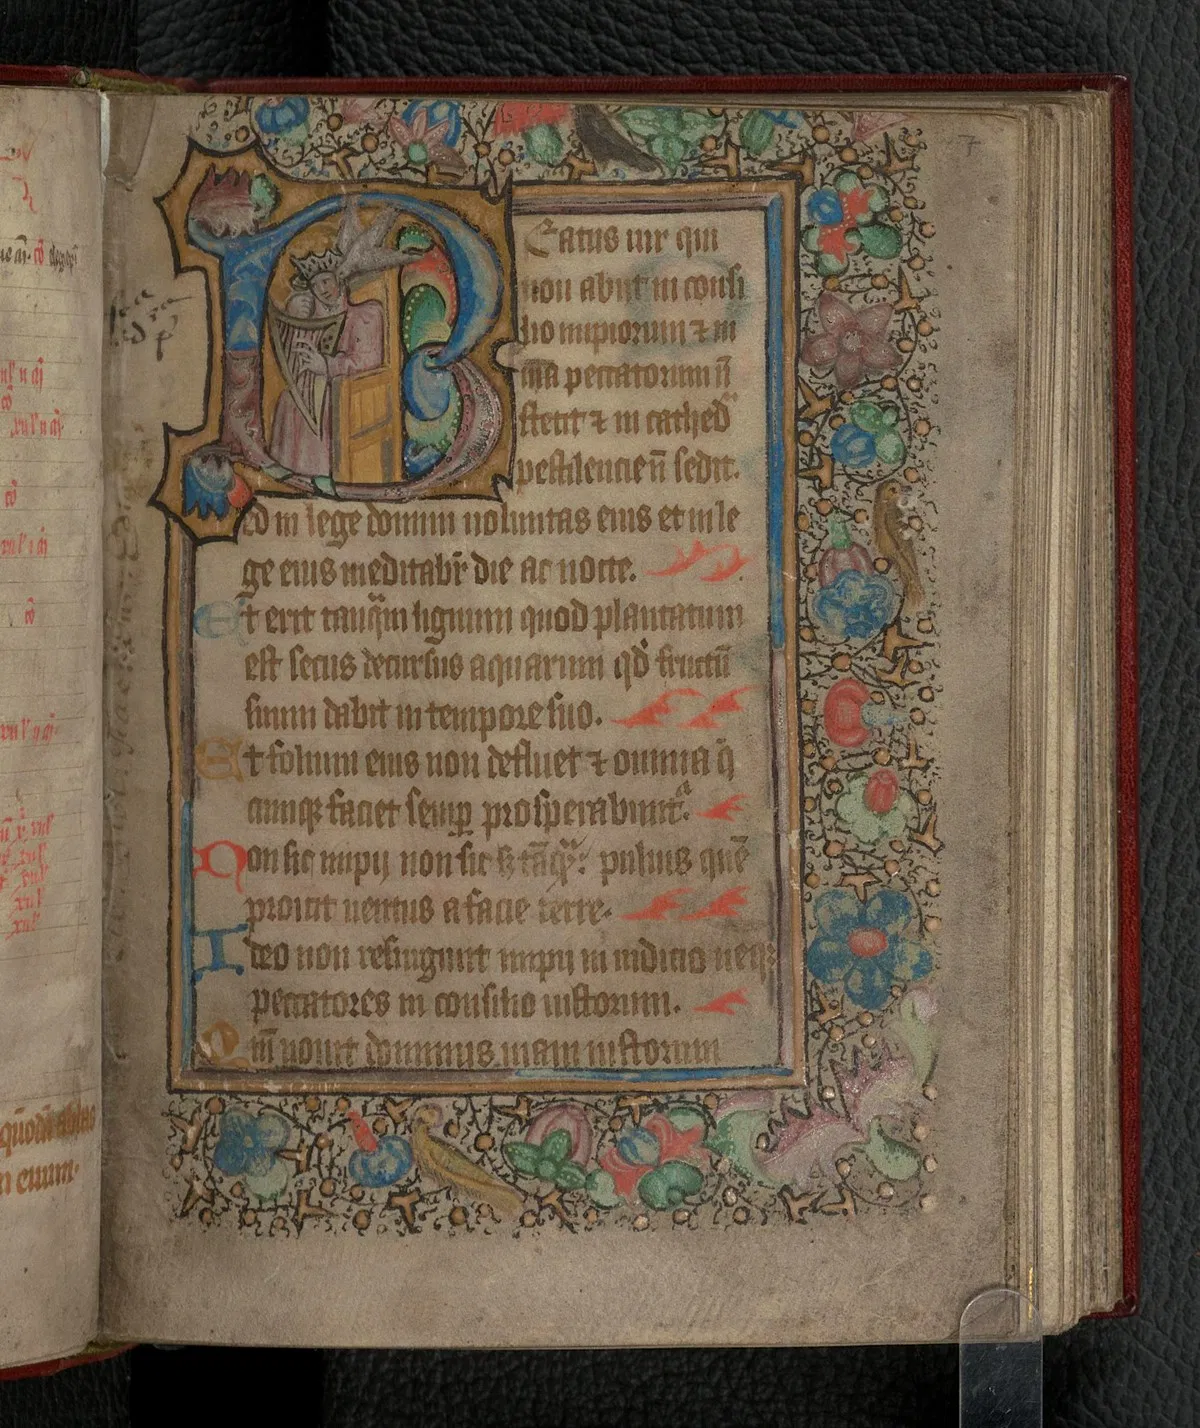 Beatus uir qui
non abiit in consi
lio impiorum ⁊ in
uia peccatorum nō
stetit ⁊ in cathedª
pestilencie nō sedit.
Sed in lege domini uoluntas eius et in le
ge eius meditabr̄ die ac nocte.
Et erit tanq̄m lignum quod plantatum
est secus decursus aquarum qd̓ fructū
suum dabit in tempore suo.
Et folium eius non defluet ⁊ omnia q̄
cumqꝫ faciet semꝑ prosperabuntᷣ.
Non sic impij non sic sꝫ tāqᷓ: puluis quē
proicit uentus a facie terre.
Ideo non resurgunt impij in iudicio neqꝫ
peccatores in consilio iustorum.
Qm̄ nouit dominus uiam iustorum
7